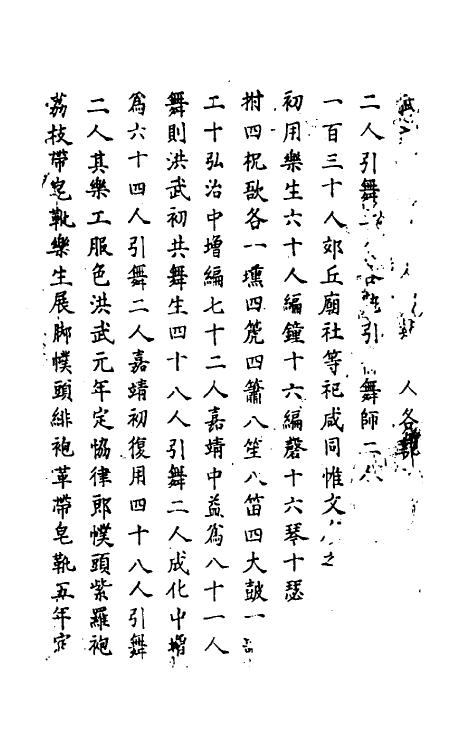 人各
二人引舞引舞師二人
一百三十人郊丘廟社等祀咸同惟文
初用樂生六十人編鐘十六編磬十六琴十瑟
拊四柷敔各一壎四箎四簫八笙八笛四大鼓一
工十弘治中增編七十二人嘉靖中益爲八十一人
舞則洪武初共舞生四十八人引舞二人成化中增
爲六十四人引舞二人嘉靖初復用四十八人引舞
二人其樂工服色洪武元年定協律郎幞頭紫羅袍
荔枝帶皂靴樂生展脚幞頭緋袍革帶皂靴五年定